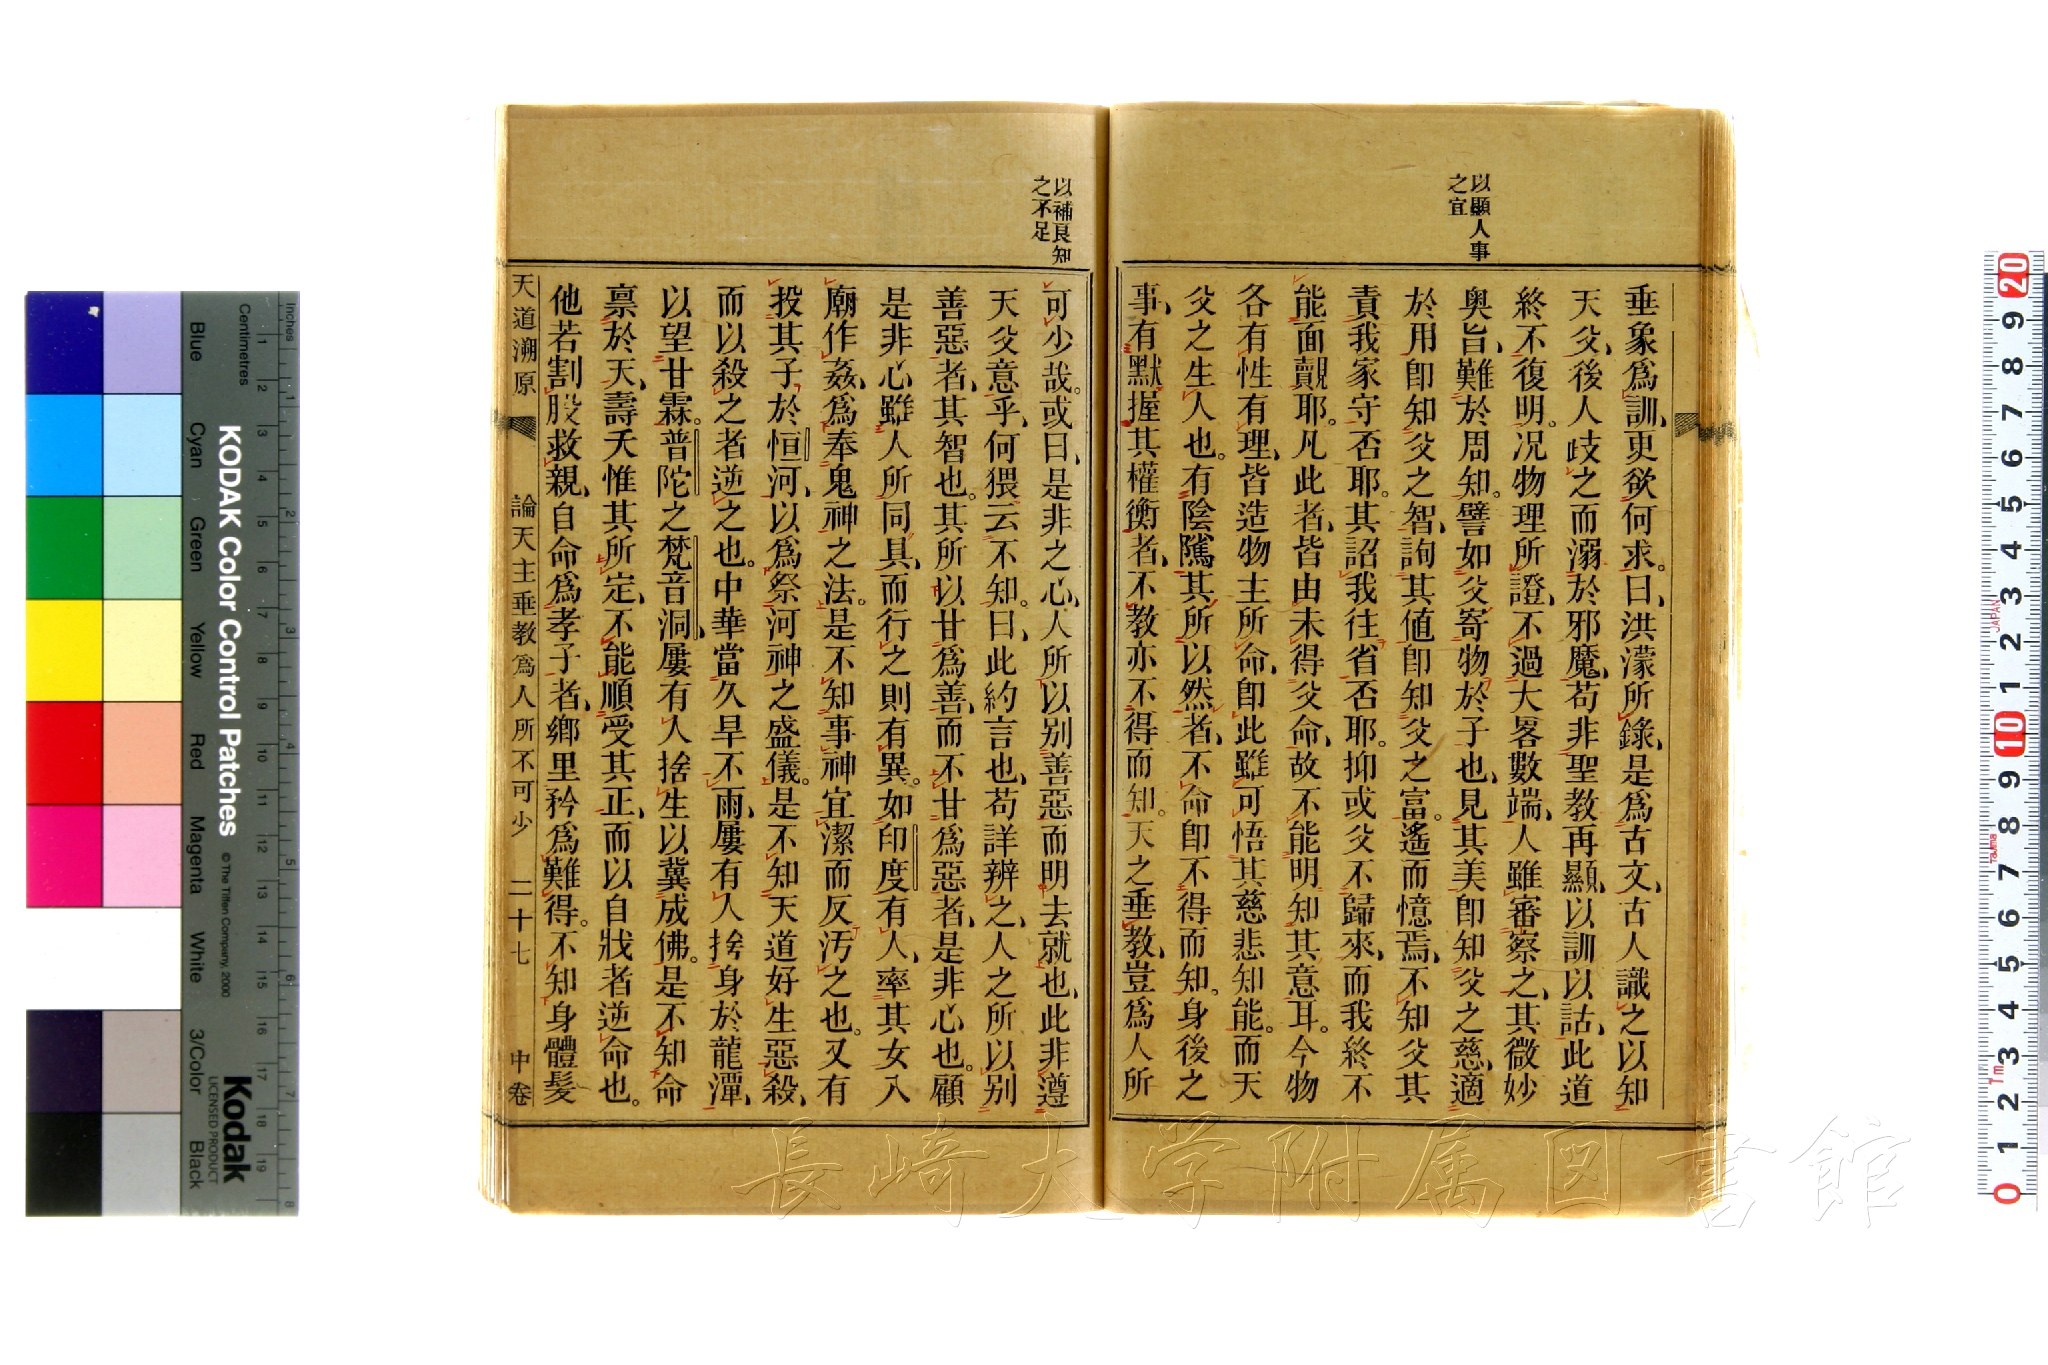 以顯人事
之宜
垂象爲訓、更欲何求。曰、洪濛所錄、是爲古文、古人識之以知
天父、後人歧之而溺於邪魔、苟非聖教再顯、以訓以詁、此道
終不復明。况物理所證、不過大畧數端、人雖審察之、其微妙
奧旨、難於周知。譬如父寄物於子也、見其美卽知父之慈、適
於用卽知父之智、詢其値卽知父之富。遙而憶焉、不知父其
責我家守否耶。其詔我往省否耶。抑或父不歸來、而我終不
能面覿耶。凡此者、皆由未得父命、故不能明知其意耳。今物
各有性有理、皆造物主所命、卽此雖可悟其慈悲知能。而天
父之生人也。有陰隲其所以然者、不命卽不得而知。身後之
事、有默握其權衡者、不教亦不得而知。天之垂教、豈爲人所
以補良知
之不足
可少哉。或曰、是非之心、人所以别善惡而明去就也、此非遵
天父意乎、何猥云不知。曰、此約言也、苟詳辨之、人之所以别
善惡者、其智也。其所以甘爲善、而不甘爲惡者、是非心也。顧
是非心雖人所同具、而行之則有異。如印度有人、率其女入
廟作姦、爲奉鬼神之法。是不知事神宜潔而反汚之也。又有
投其子於恒河、以爲祭河神之盛儀。是不知天道好生惡殺、
而以殺之者逆之也。中華當久旱不雨、屢有人捨身於龍潭、
以望甘霖。普陀之梵音洞、屢有人捨生以冀成佛。是不知命
禀於天、壽夭惟其所定、不能順受其正、而以自戕者逆命也。
他若割股救親、自命爲孝子者、鄉里矜爲難得。不知身體髮
天道溯原 論天主垂教爲人所不可少 二十七 中卷
長崎大学附属図書館
KODAK Color Control Patches
©The Tiffen Company, 2000
Kodak
LICENSED PRODUCT
Blue Cyan Green Yellow Red Magenta White 3/Color Black
Centimetres
Inches
1 2 3 4 5 6 7 8 9 10 11 12 13 14 15 16 17 18 19
1 2 3 4 5 6 7 8
20 9 8 7 6 5 4 3 2 1 10 9 8 7 6 5 4 3 2 1 0
JAPAN
Tajima
1m